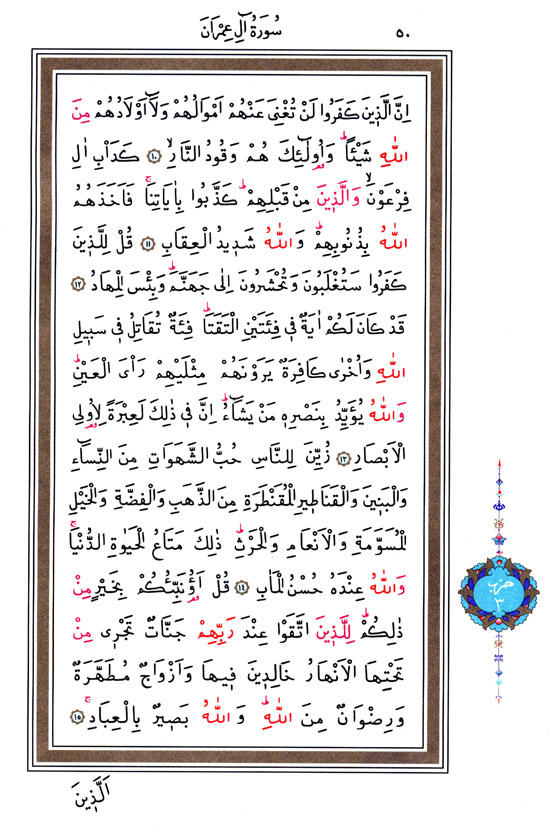 سُورَةُ اٰلِ عِمْرَانَ ٥٠
اِنَّ الَّذٖينَ كَفَرُوا لَنْ تُغْنِيَ عَنْهُمْ اَمْوَالُهُمْ وَلَٓا اَوْلَادُهُمْ مِنَ
اللّٰهِ شَيْـًٔاؕ وَاُو۬لٰٓئِكَ هُمْ وَقُودُ النَّارِۙ ﴿١٠﴾ كَدَاْبِ اٰلِ
فِرْعَوْنَۙ وَالَّذٖينَ مِنْ قَبْلِهِمْؕ كَذَّبُوا بِاٰيَاتِنَاۚ فَاَخَذَهُمُ
اللّٰهُ بِذُنُوبِهِمْؕ وَاللّٰهُ شَدٖيدُ الْعِقَابِ ﴿١١﴾ قُلْ لِلَّذٖينَ
كَفَرُوا سَتُغْلَبُونَ وَتُحْشَرُونَ اِلٰى جَهَنَّمَؕ وَبِئْسَ الْمِهَادُ ﴿١٢﴾
قَدْ كَانَ لَكُمْ اٰيَةٌ فٖي فِئَتَيْنِ الْتَقَتَاؕ فِئَةٌ تُقَاتِلُ فٖي سَبٖيلِ
اللّٰهِ وَاُخْرٰى كَافِرَةٌ يَرَوْنَهُمْ مِثْلَيْهِمْ رَاْيَ الْعَيْنِؕ
وَاللّٰهُ يُؤَيِّدُ بِنَصْرِهٖ مَنْ يَشَٓاءُؕ اِنَّ فٖي ذٰلِكَ لَعِبْرَةً لِاُو۬لِي
الْاَبْصَارِ ﴿١٣﴾ زُيِّنَ لِلنَّاسِ حُبُّ الشَّهَوَاتِ مِنَ النِّسَٓاءِ
وَالْبَنٖينَ وَالْقَنَاطٖيرِ الْمُقَنْطَرَةِ مِنَ الذَّهَبِ وَالْفِضَّةِ وَالْخَيْلِ
الْمُسَوَّمَةِ وَالْاَنْعَامِ وَالْحَرْثِؕ ذٰلِكَ مَتَاعُ الْحَيٰوةِ الدُّنْيَاۚ
وَاللّٰهُ عِنْدَهُ حُسْنُ الْمَاٰبِ ﴿١٤﴾ قُلْ اَؤُ۬نَبِّئُكُمْ بِخَيْرٍ مِنْ
ذٰلِكُمْؕ لِلَّذٖينَ اتَّقَوْا عِنْدَ رَبِّهِمْ جَنَّاتٌ تَجْرٖي مِنْ
تَحْتِهَا الْاَنْهَارُ خَالِدٖينَ فٖيهَا وَاَزْوَاجٌ مُطَهَّرَةٌ
وَرِضْوَانٌ مِنَ اللّٰهِؕ وَاللّٰهُ بَصٖيرٌ بِالْعِبَادِۚ ﴿١٥﴾
حزب
٣
اَلَّذٖينَ